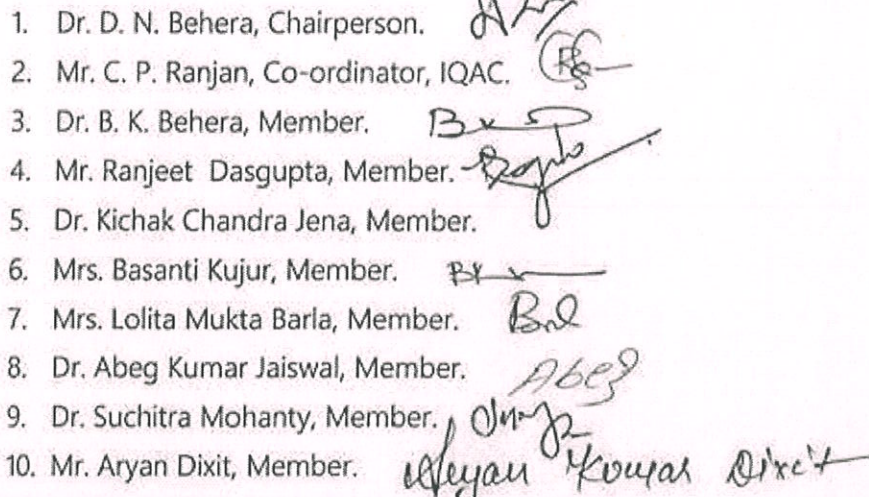 1. Dr. D. N. Behera, Chairperson.
2. Mr. C. P. Ranjan, Co-ordinator, IQAC.
3. Dr. B. K. Behera, Member.
4. Mr. Ranjeet Dasgupta, Member.
5. Dr. Kichak Chandra Jena, Member.
6. Mrs. Basanti Kujur, Member.
7. Mrs. Lolita Mukta Barla, Member.
8. Dr. Abeg Kumar Jaiswal, Member. Abeg
9. Dr. Suchitra Mohanty, Member.
10. Mr. Aryan Dixit, Member. Aryan Kumar Dixit